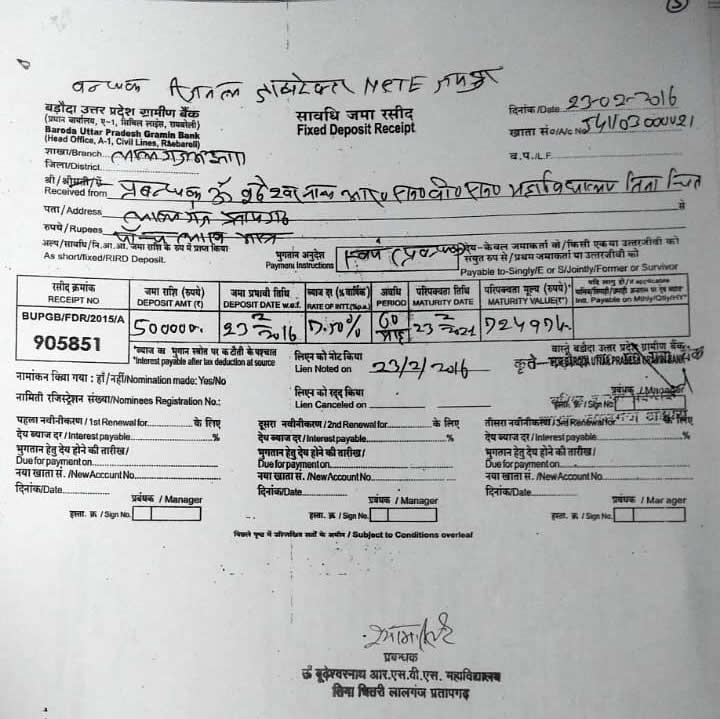 5
बन्धक रीजनल डायरेक्टर NCTE जयपुर
बड़ौदा उत्तर प्रदेश ग्रामीण बैंक
(प्रधान कार्यालय, ए-1, सिविल लाइंस, रायबरेली)
Baroda Uttar Pradesh Gramin Bank
(Head Office, A-1, Civil Lines, Raebareli)
सावधि जमा रसीद
Fixed Deposit Receipt
दिनांक/Date 23-02-2016
खाता सं०/A/c No
शाखा/Branch
जिला/District
व.प./L.F.
श्री/श्रीमती/
Received from प्रबन्धक ॐ बूढेश्वर नाथ आर० एस० वी० एस० महाविद्यालय
पता/Address लालगंज प्रतापगढ़ से
रुपये/Rupees पाँच लाख मात्र
अल्प/सावधि/नि.आ.आ. जमा राशि के रूप में प्राप्त किया
As short/fixed/RIRD Deposit.
भुगतान अनुदेश
Payment Instructions
देय-केवल जमाकर्ता को/किसी एक या उत्तरजीवी को
संयुक्त रुप से/प्रथम जमाकर्ता या उत्तरजीवी को
Payable to-Singly/E or S/Jointly/Former or Survivor
रसीद क्रमांक
RECEIPT NO
जमा राशि (रुपये)
DEPOSIT AMT (₹)
जमा प्रभावी तिथि
DEPOSIT DATE w.e.f.
ब्याज दर (% वार्षिक)
RATE OF INT.(%p.a.)
अवधि
PERIOD
परिपक्वता तिथि
MATURITY DATE
परिपक्वता मूल्य (रुपये)*
MATURITY VALUE(₹*)
यदि लागू हो/If applicable
Int. Payable on Mthly/Qtly/HY*
BUPGB/FDR/2015/A
905851
500000
23 2 2016
7.50%
60 माह
23 2 2021
724974
*ब्याज का भुगतान स्त्रोत पर कटौती के पश्चात
*Interest payable after tax deduction at source
लिएन को नोट किया
Lien Noted on 23/2/2016
वास्ते बड़ौदा उत्तर प्रदेश ग्रामीण बैंक
कृते-
नामांकन किया गया : हाँ/नहीं/Nomination made: Yes/No
प्रबन्धक / Manager
लिएन को रद्द किया
Lien Canceled on
नामिती रजिस्ट्रेशन संख्या/Nominees Registration No.:
हस्ता. क्र. / Sign No.
पहला नवीनीकरण / 1st Renewal for के लिए
देय ब्याज दर / Interest payable %
भुगतान हेतु देय होने की तारीख/
Due for payment on
नया खाता सं. /New Account No.
दिनांक/Date
प्रबंधक / Manager
हस्ता. क्र. / Sign No.
दूसरा नवीनीकरण / 2nd Renewal for के लिए
देय ब्याज दर / Interest payable %
भुगतान हेतु देय होने की तारीख/
Due for payment on
नया खाता सं. /New Account No.
दिनांक/Date
प्रबंधक / Manager
हस्ता. क्र. / Sign No.
तीसरा नवीनीकरण /3rd Renewal for के लिए
देय ब्याज दर / Interest payable %
भुगतान हेतु देय होने की तारीख/
Due for payment on
नया खाता सं. /New Account No.
दिनांक/Date
प्रबंधक / Manager
हस्ता. क्र. / Sign No.
पिछले पृष्ठ में उल्लिखित शर्तों के अधीन / Subject to Conditions overleaf
प्रबन्धक
ॐ बूढेश्वरनाथ आर.एस.वी.एस. महाविद्यालय
लालगंज प्रतापगढ़